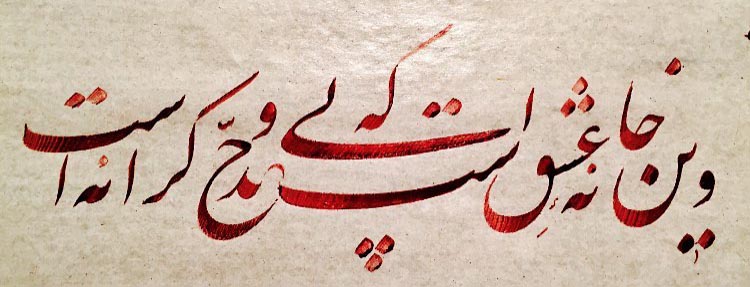 وین خانهٔ عشق است که بی حدّ و کرانه است